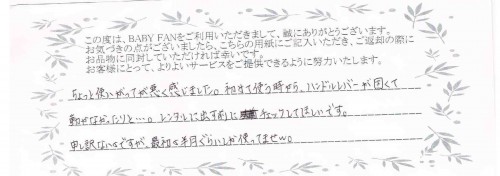 この度は、BABY FANをご利用いただきまして、誠にありがとうございます。
お気づきの点がございましたら、こちらの用紙にご記入いただき、ご返却の際に
お品物に同封していただければ幸いです。
お客様にとって、よりよいサービスをご提供できるように努力いたします。
ちょっと使いがってが悪く感じました。初めて使う時から、ハンドルレバーが固くて
動かなかったりと…。レンタルに出す前にチェックしてほしいです。
申し訳ないですが、最初の半月ぐらいしか使ってません。